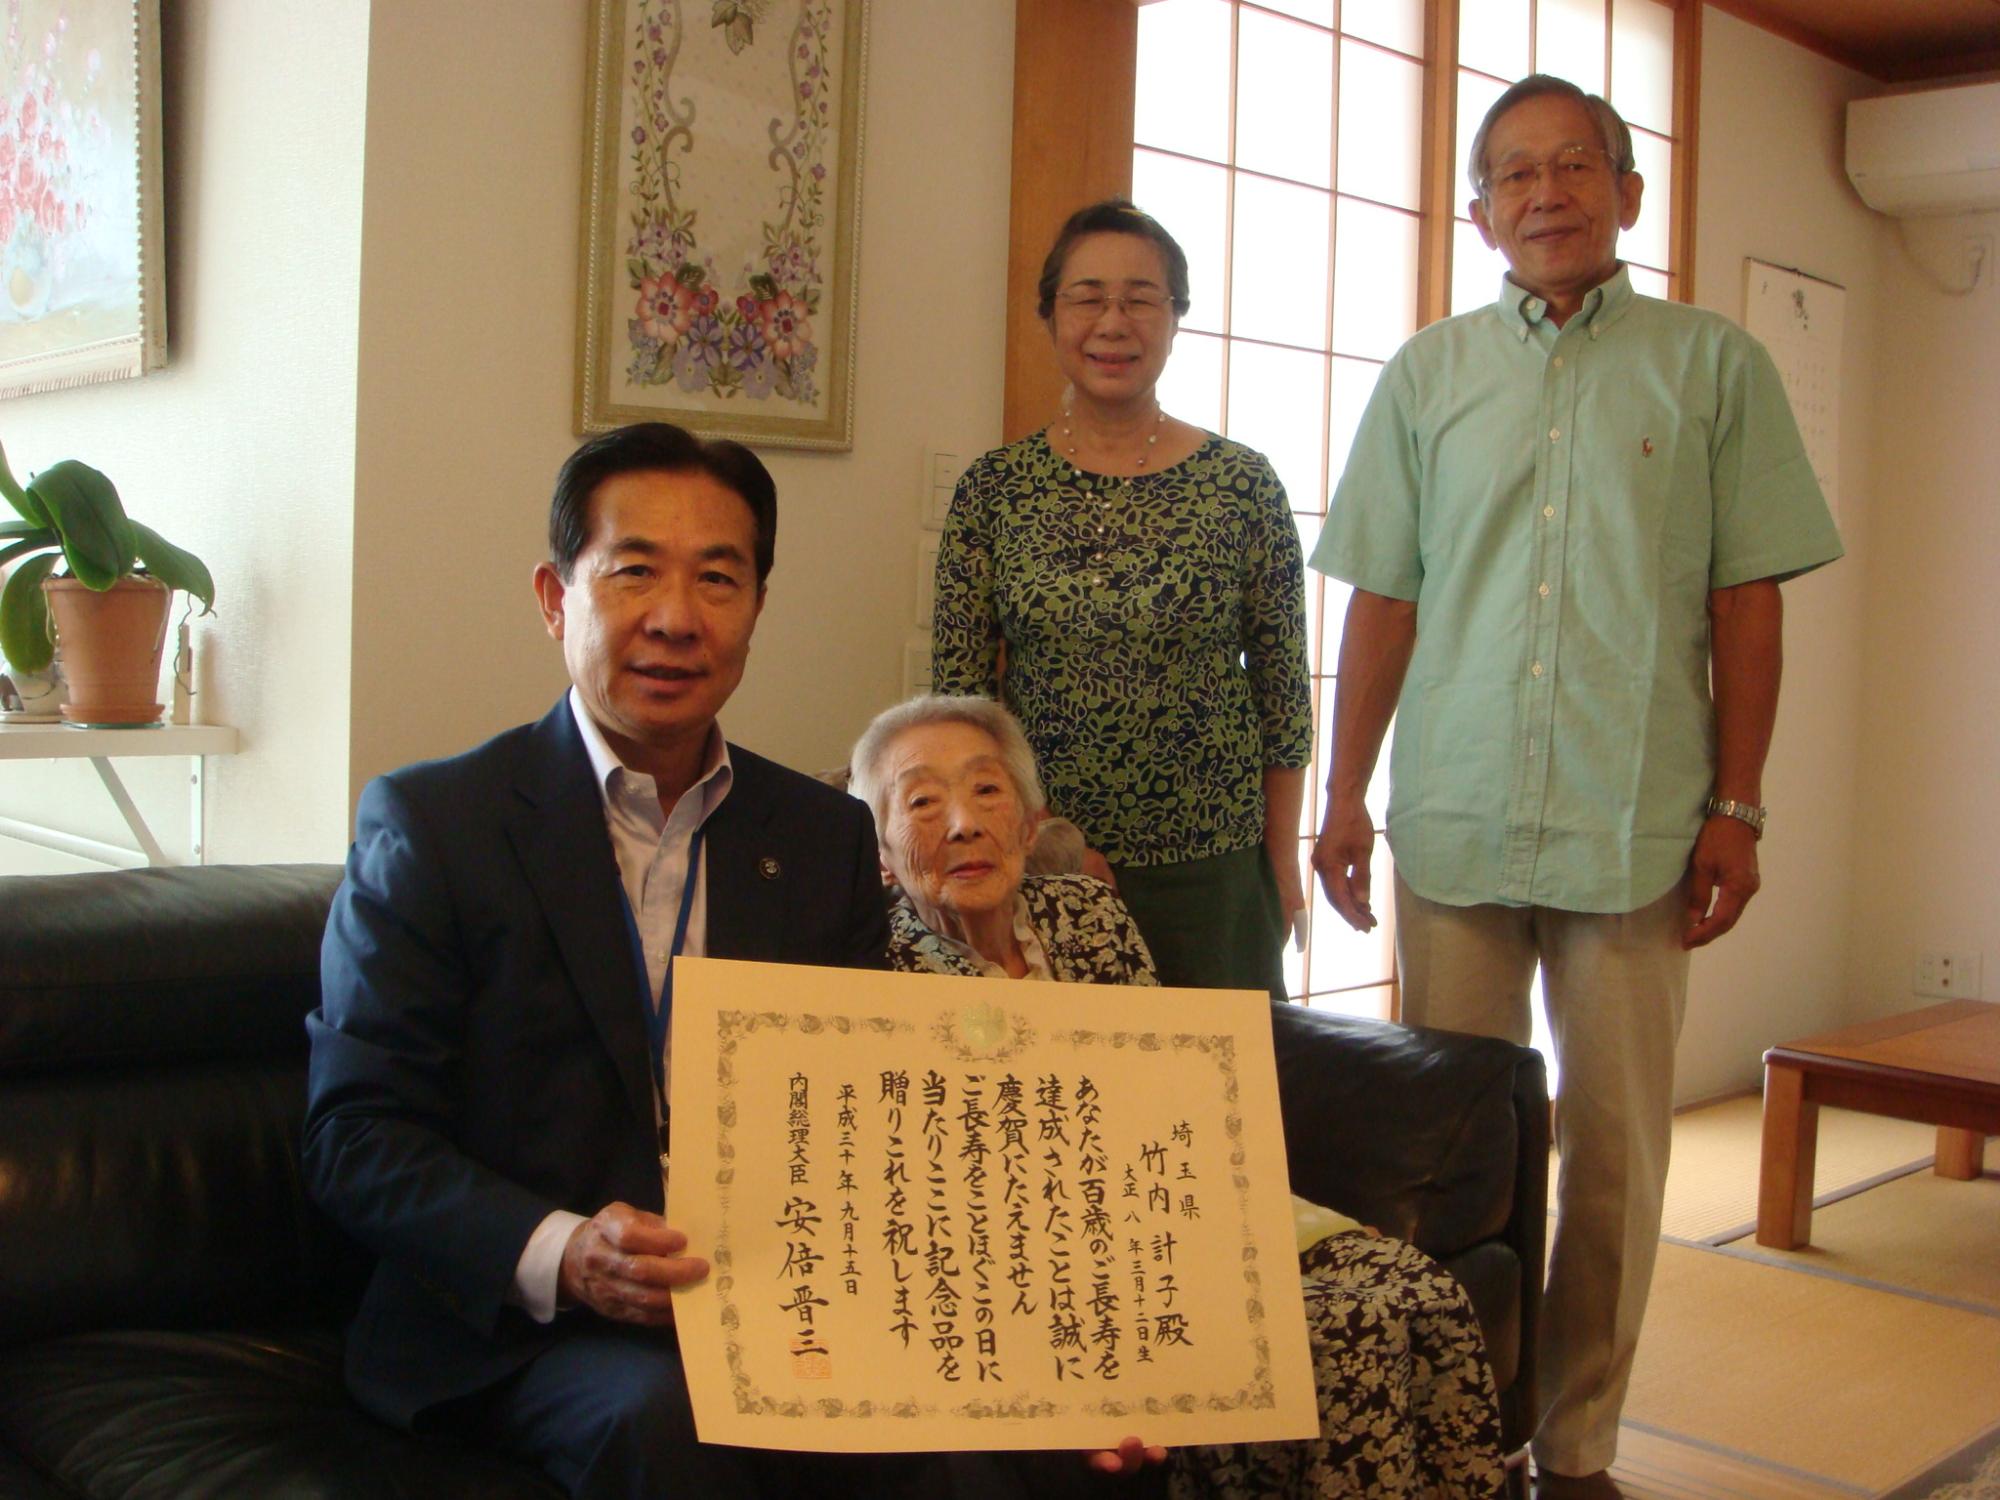 埼玉県
竹内計子殿
大正八年三月十二日生
あなたが百歳のご長寿を
達成されたことは誠に
慶賀にたえません
ご長寿をことほぐこの日に
当たりここに記念品を
贈りこれを祝します
平成三十年九月十五日
内閣総理大臣 安倍晋三